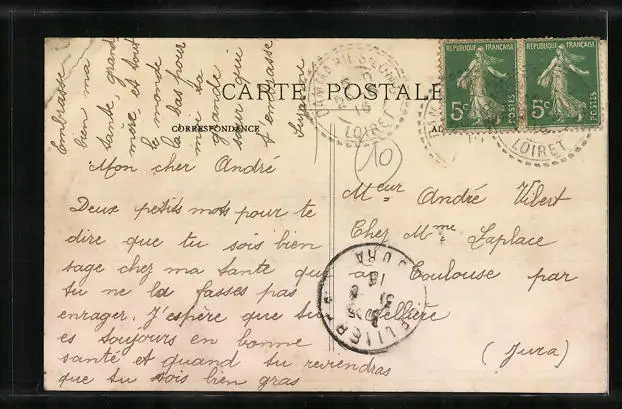 Embrasse
bien ma
tante, grand
mère, et tout
le monde
la bas pour
moi ta
grande
sœur qui
t'embrasse
Suzanne
CARTE POSTALE
CORRESPONDANCE
REPUBLIQUE FRANÇAISE
5c POSTES
REPUBLIQUE FRANÇAISE
5c POSTES
LOIRET
LOIRET
10
Mon cher André
Deux petits mots pour te
dire que tu sois bien
sage chez ma tante que
tu ne la fasses pas
enrager. J'espère que tu
es toujours en bonne
santé et quand tu reviendras
que tu sois bien gras
Meur André Vibert
Chez Mme Laplace
à Toulouse par
Sellière
(Jura)
JURA